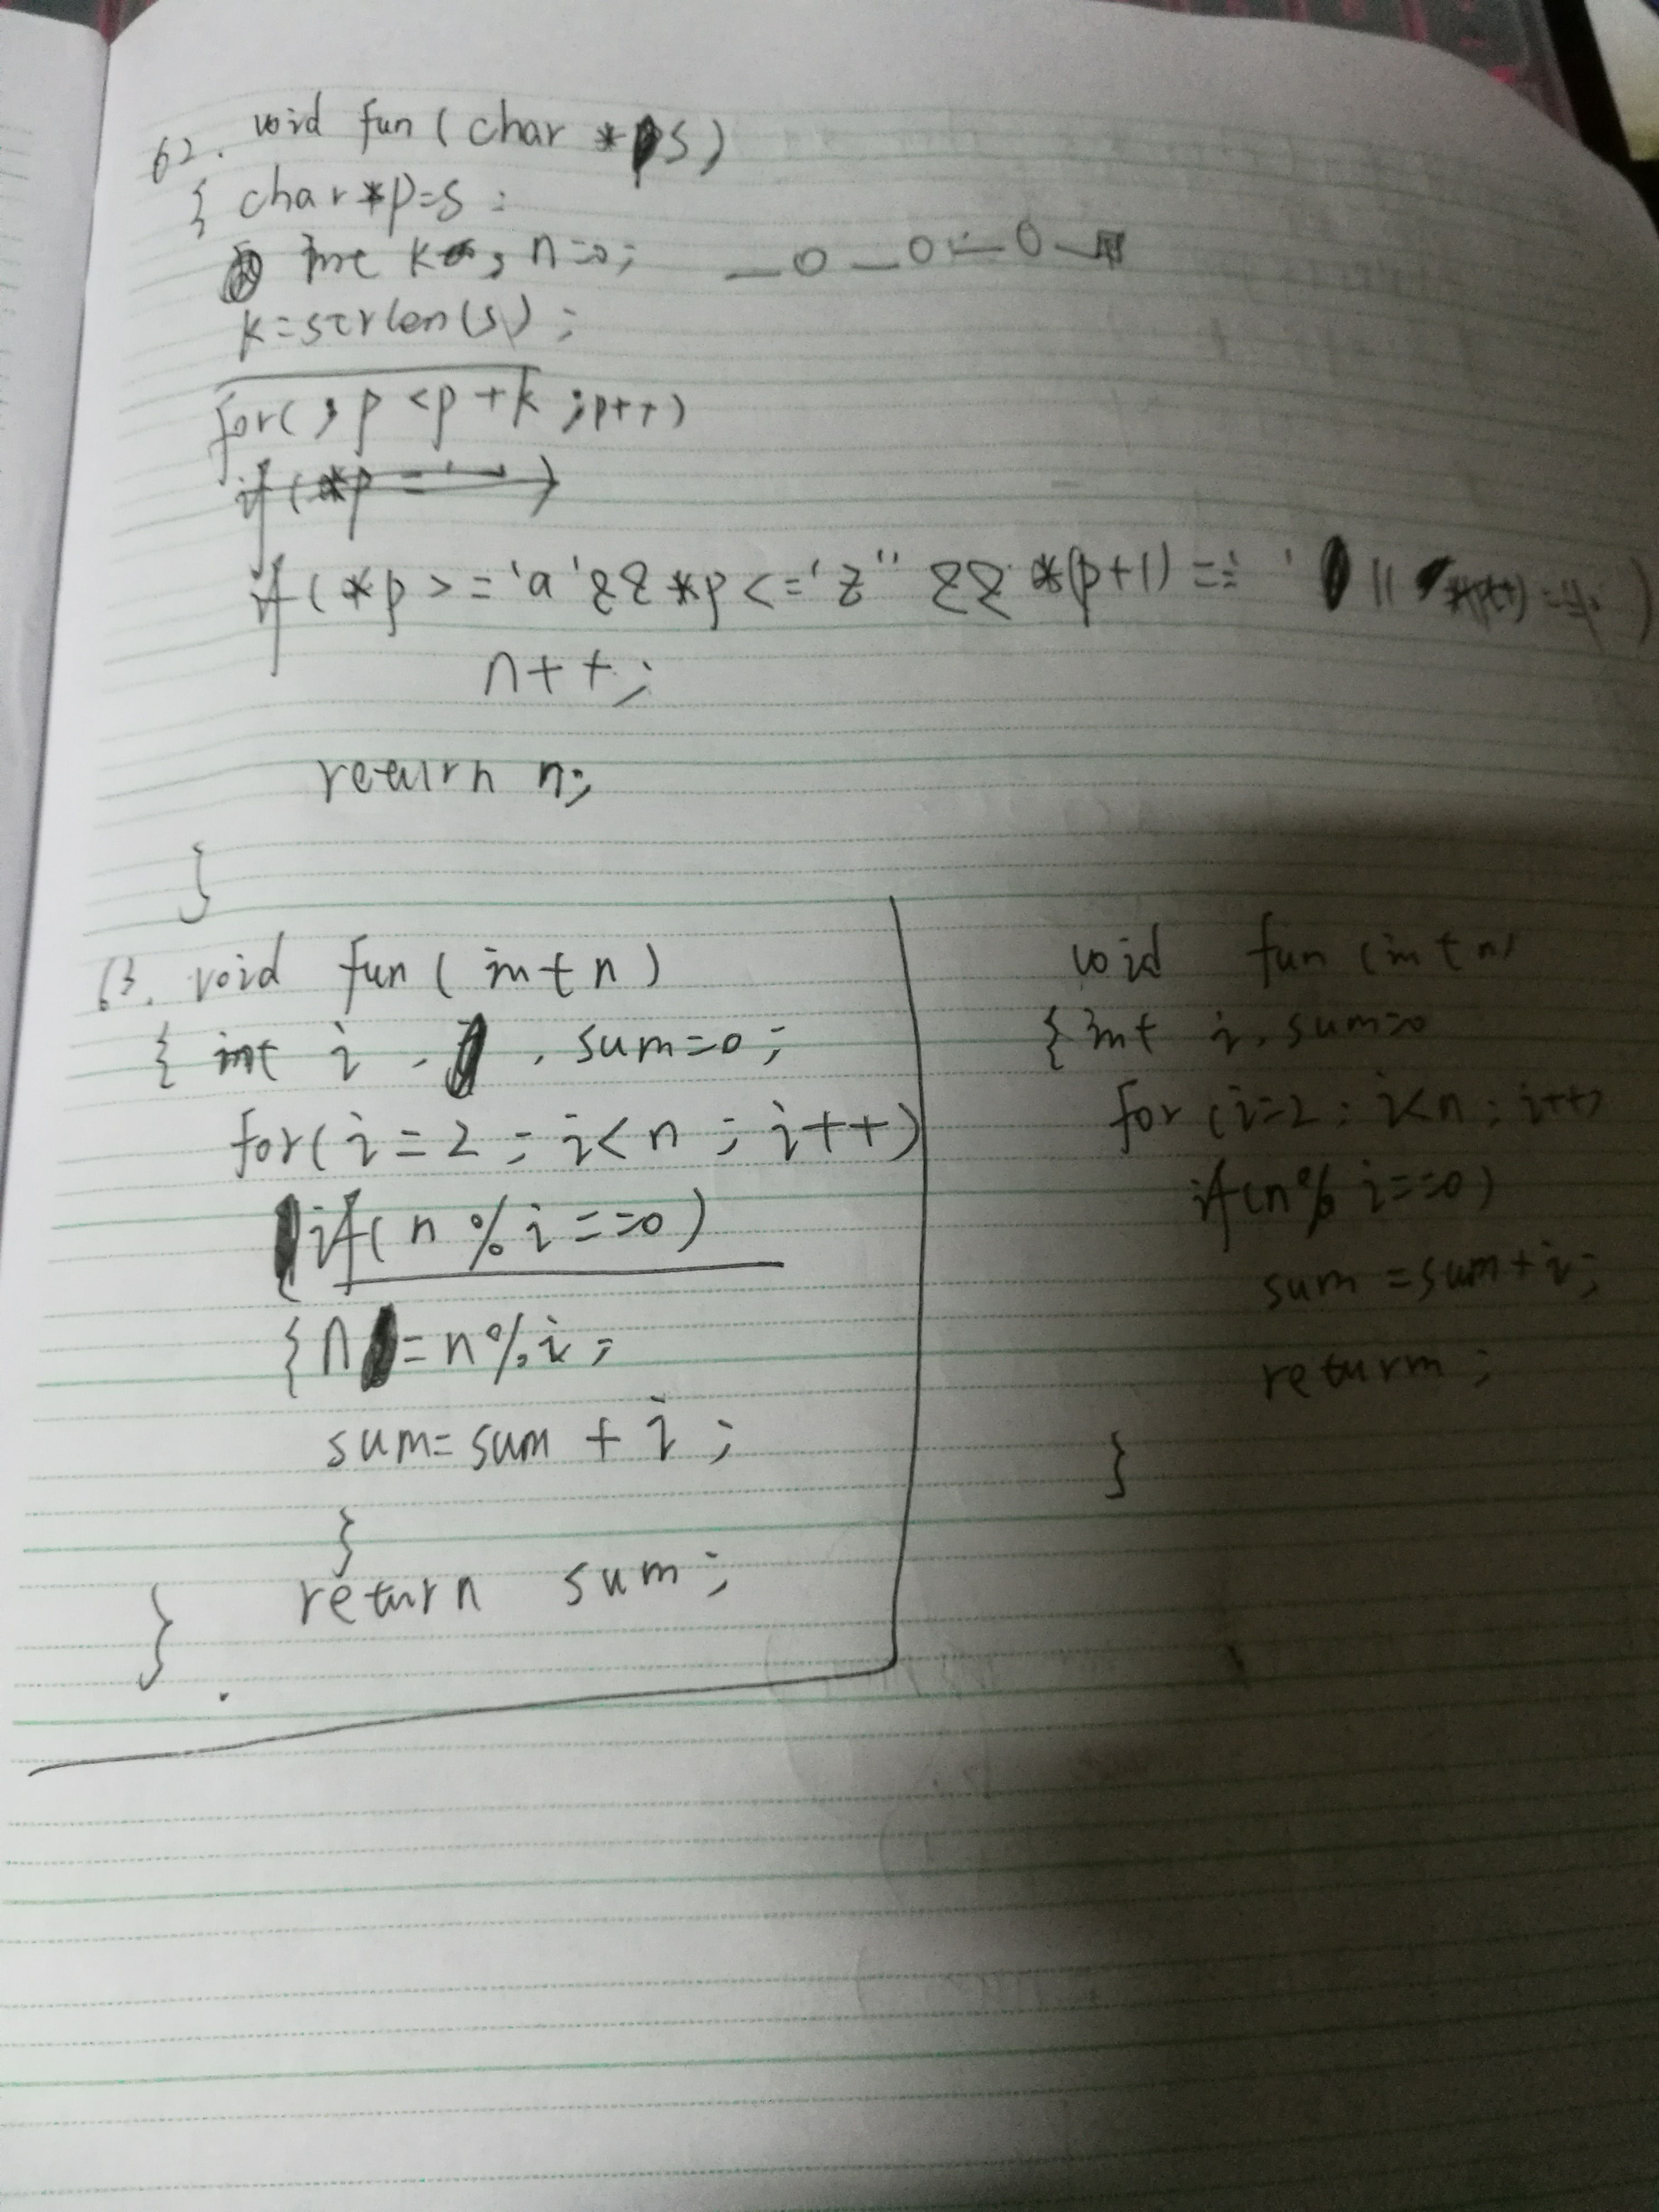 62. void fun (char *s)
{ char *p=s;
int k, n=0;
k=strlen(s);
for(; p<p+k; p++)
if(*p>='a'&&*p<='z''&&*(p+1)==' ' ||
n++;
return n;
}
63. void fun (int n)
{ int i, , sum=0;
for(i=2; i<n; i++)
if(n%i==0)
{n=n%i;
sum=sum+i;
}
return sum;
}
void fun (int n)
{int i, sum=0
for (i=2; i<n; i++)
if(n%i==0)
sum=sum+i;
return;
}